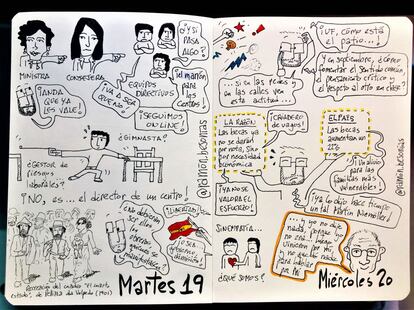 MINISTRA
CONSEJERA
¿Y SI
PASA
ALGO?
¡ANDA
QUE YA
LES VALE!
¡VA A SER
QUE NO!
EQUIPOS
DIRECTIVOS
¡el marrón
para los
centros!
¡SEGUIMOS
ONLINE!
¿GIMNASTA?
¿GESTOR de
riesgos
laborales?
¡NO, ES... el director de un centro!
¡LIBERTAD!
Recreación del cuadro "El cuarto
estado", de Pellizza da Volpedo (1901)
Martes 19
@ramon_besonias
¡UF, CÓMO ESTÁ
EL PATIO...!
...si en las redes y
en las calles ven
esta actitud...
Y en septiembre, ¿cómo
fomentar el sentido común,
el pensamiento crítico y
el respeto al otro en clase?
LA RAZÓN
Las becas ya
no se darán
por nota, sino
por necesidad
económica
¡CRIADERO
de vagos!
EL PAÍS
Las becas
aumentan un
22%
¡YA NO SE
VALORA EL
ESFUERZO!
¡Un alivio
para las
familias más
vulnerables!
SINCERAMENTE,
¿QUÉ SOMOS?
Ya lo dijo hace tiempo
un tal Martin Niemöller
...y yo no dije
nada, porque
yo no era...
luego
vinieron por mí,
y no quedó nadie
para hablar
por mí
@ramon_besonias
Miércoles 20